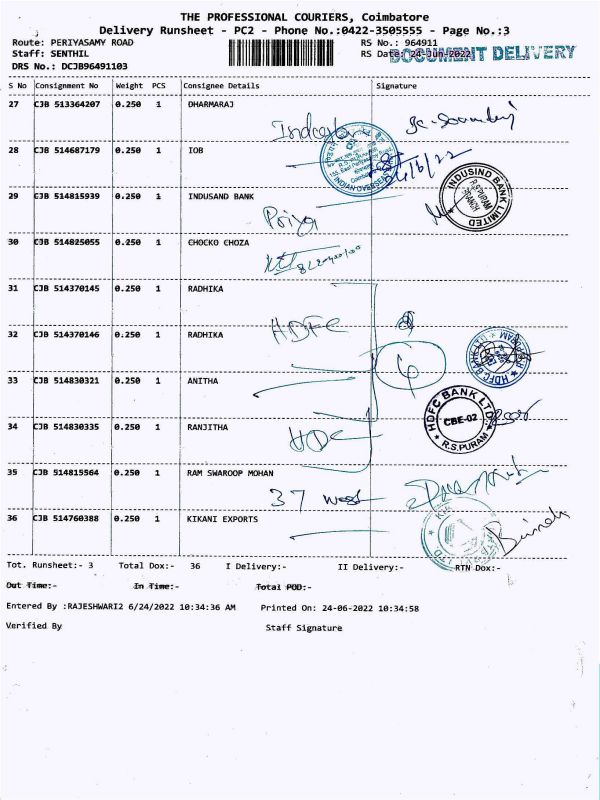 THE PROFESSIONAL COURIERS, Coimbatore
Delivery Runsheet - PC2 - Phone No.:0422-3505555 - Page No.:3
Route: PERIYASAMY ROAD RS No.: 964911
Staff: SENTHIL RS Date: 24-Jun-2022 DOCUMENT DELIVERY
DRS No.: DCJB96491103
S No Consignment No Weight PCS Consignee Details Signature
27 CJB 513364207 0.250 1 DHARMARAJ
28 CJB 514687179 0.250 1 IOB
INDIAN OVERSEAS
29 CJB 514815939 0.250 1 INDUSAND BANK
INDUSIND BANK LIMITED
R.S.PURAM BRANCH
Priya
30 CJB 514825055 0.250 1 CHOCKO CHOZA
31 CJB 514370145 0.250 1 RADHIKA
HDFC
32 CJB 514370146 0.250 1 RADHIKA
33 CJB 514830321 0.250 1 ANITHA
HDFC BANK LTD.
CBE-02
R.S.PURAM
34 CJB 514830335 0.250 1 RANJITHA
35 CJB 514815564 0.250 1 RAM SWAROOP MOHAN
37 west
36 CJB 514760388 0.250 1 KIKANI EXPORTS
Tot. Runsheet:- 3 Total Dox:- 36 I Delivery:- II Delivery:- RTN Dox:-
Out Time:- In Time:- Total POD:-
Entered By :RAJESHWARI2 6/24/2022 10:34:36 AM Printed On: 24-06-2022 10:34:58
Verified By Staff Signature